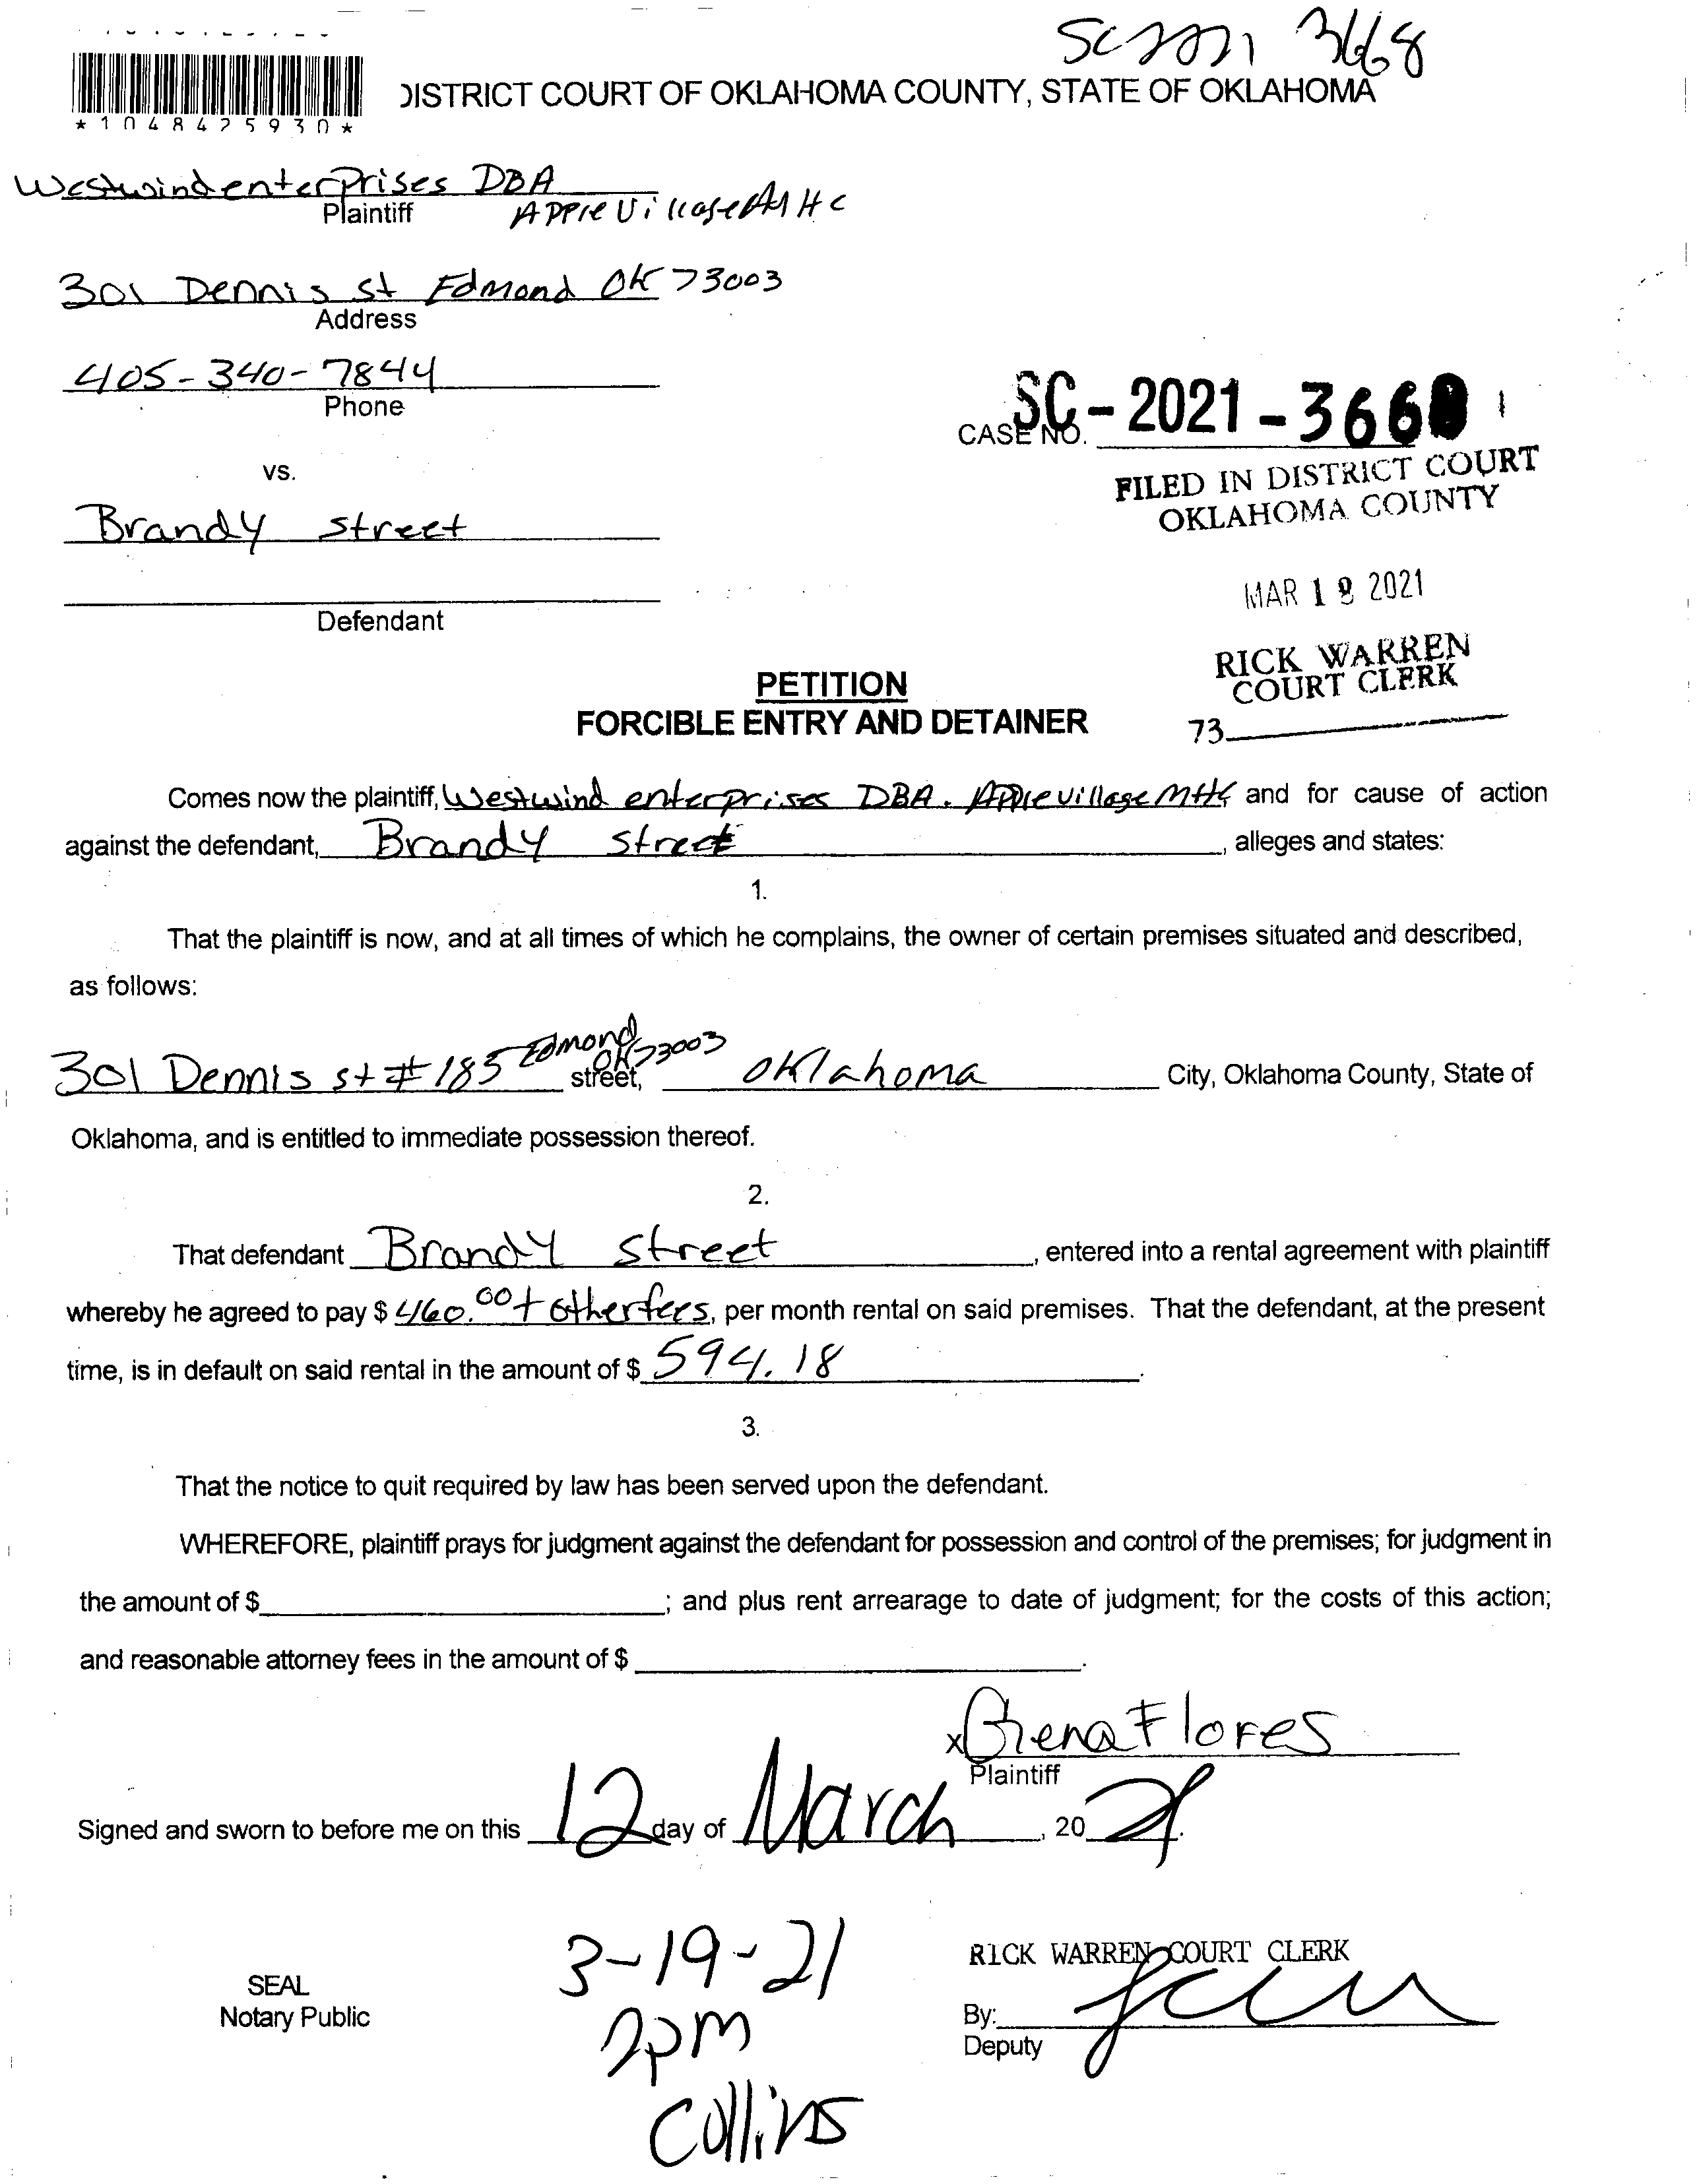 SC 2021 3668
*1048425930*
DISTRICT COURT OF OKLAHOMA COUNTY, STATE OF OKLAHOMA
Westwind enterprises DBA
Plaintiff
Apple Village MHC
301 Dennis st Edmond OK 73003
Address
405-340-7844
Phone
SC-2021-3668
CASE NO.
vs.
FILED IN DISTRICT COURT
OKLAHOMA COUNTY
Brandy street
MAR 2021
Defendant
RICK WARREN
COURT CLERK
PETITION
FORCIBLE ENTRY AND DETAINER
73
Comes now the plaintiff, Westwind enterprises DBA. Apple village MHC and for cause of action
against the defendant, Brandy street, alleges and states:
1.
That the plaintiff is now, and at all times of which he complains, the owner of certain premises situated and described,
as follows:
301 Dennis st # 185 Edmond OK 73003 street, Oklahoma City, Oklahoma County, State of
Oklahoma, and is entitled to immediate possession thereof.
2.
That defendant Brandy street, entered into a rental agreement with plaintiff
whereby he agreed to pay $ 460.00 + other fees, per month rental on said premises. That the defendant, at the present
time, is in default on said rental in the amount of $ 594.18.
3.
That the notice to quit required by law has been served upon the defendant.
WHEREFORE, plaintiff prays for judgment against the defendant for possession and control of the premises; for judgment in
the amount of $ ; and plus rent arrearage to date of judgment; for the costs of this action;
and reasonable attorney fees in the amount of $ .
x Gena Flores
Plaintiff
Signed and sworn to before me on this 12 day of March, 20 21.
3-19-21
RICK WARREN COURT CLERK
SEAL
Notary Public
2pm
By:
Deputy
Collins